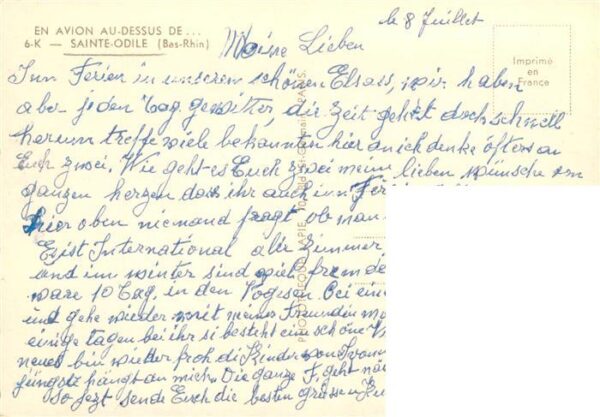 EN AVION AU-DESSUS DE...
6-K — SAINTE-ODILE (Bas-Rhin)
le 8 Juillet
Meine Lieben
Imprimé
en
France
Inn Ferien in unserem schönen Elsass, wir haben
aber jeden Tag gewitter, die Zeit geht doch schnell
herum treffe viele bekannten hier an ich denke öfters an
Euch zwei. Wie geht es Euch zwei meine lieben wünsche von
ganzen herzen dass ihr auch inn
hier oben niemand fragt ob man
Es ist International alle Zimmer
und im winter sind viele fremde
ware 10 Tag, in den Vogesen. Bei eine
und gehe wieder mit meiner Freundin
einige tagen bei ihr si besteht ein schöne
neues bin wieder froh di Kinder von
jüngste hängt an mich. Die ganze F. geht
so jezt sende Euch die besten grüssen